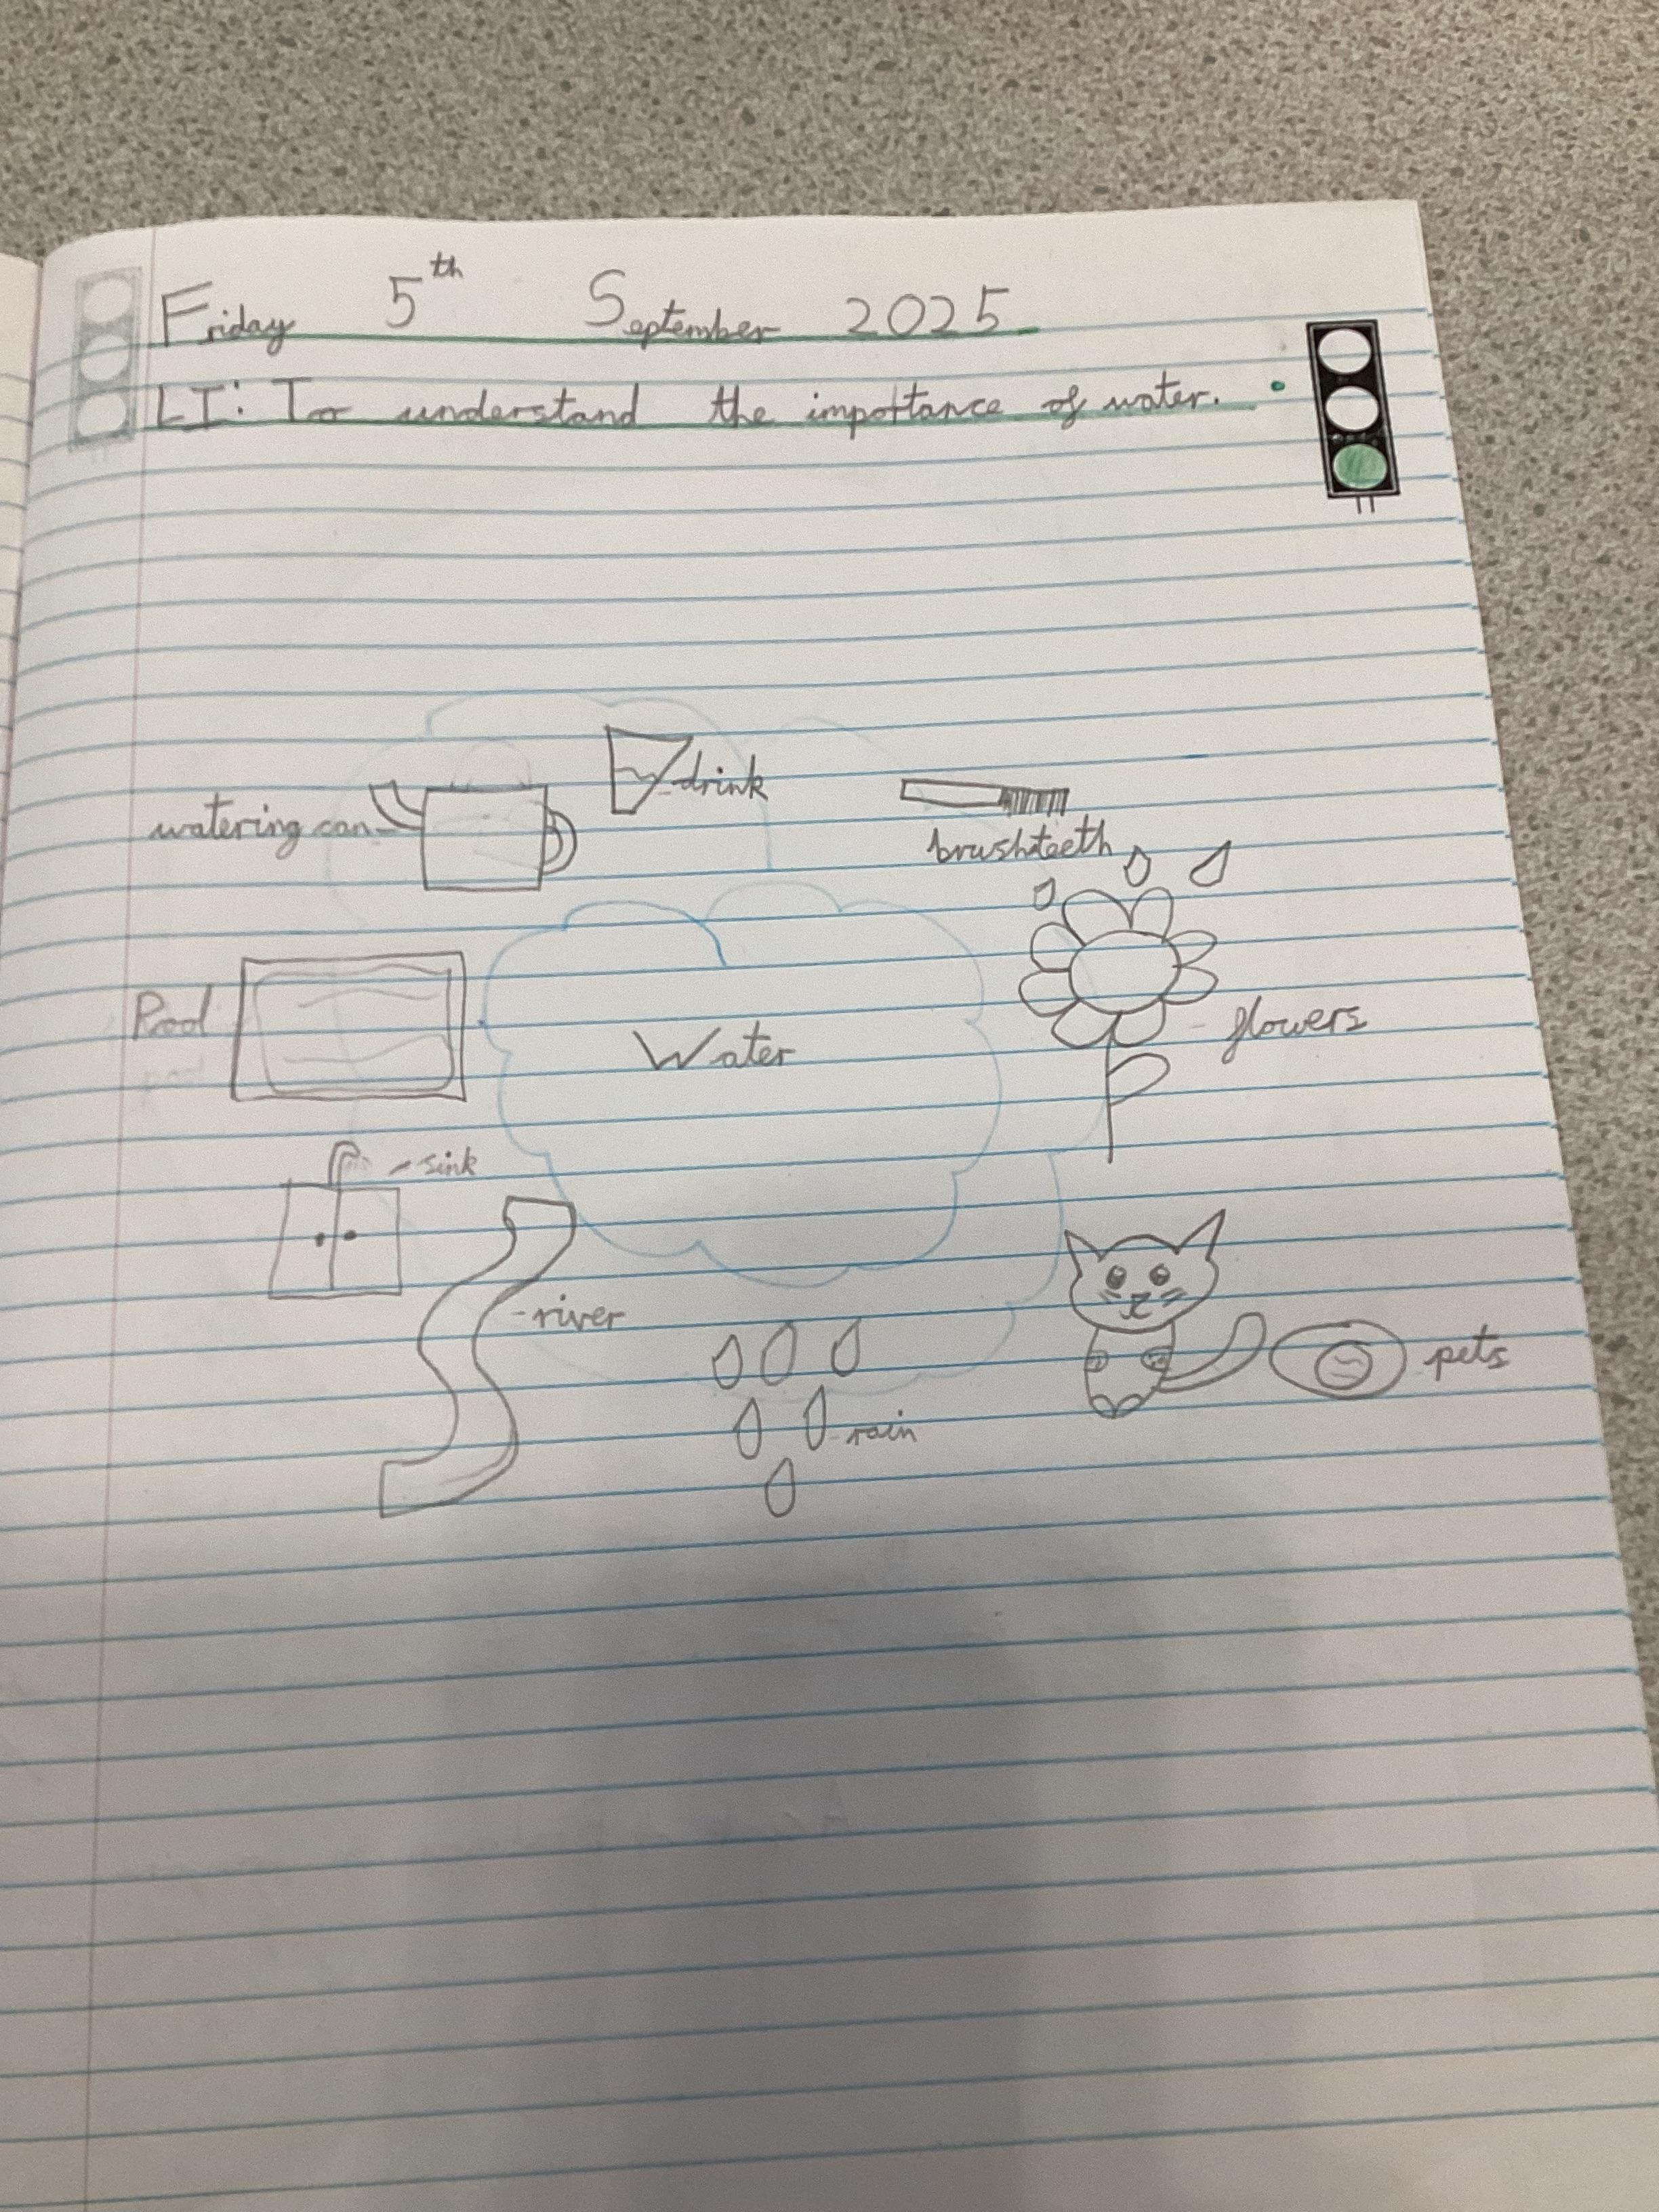 Friday 5th September 2025
LI: To understand the importance of water.
drink
watering can
brush teeth
Pool
Water
flowers
sink
river
pets
rain